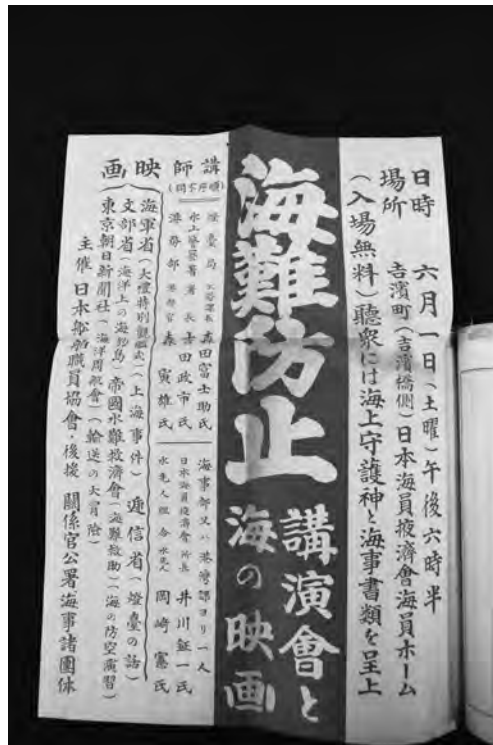 日時　六月一日(土曜)午後六時半
場所　吉濱町(吉濱橋側)日本海員掖濟會海員ホーム
(入場無料)聽衆には海上守護神と海事書類を呈上
海難防止
講演會と
海の映画
講師
(順序不同)
燈臺局
森田富士助氏
水上警察署長
吉田政市氏
港務部
森寅雄氏
海事部又ハ港灣部ヨリ一人
日本海員掖濟會所長　井川証一氏
水先人組合水先人　岡崎憲氏
映画
海軍省(大演特別觀艦式)(上海事件)　遞信省(燈臺の話)
文部省(海洋上の海動島)帝國水難救濟會(海難救助)(海の防空演習)
東京朝日新聞社(海洋周航會)(輸送の大冒険)
主催　日本船舶職員協會・後援　關係官公署海事諸團体